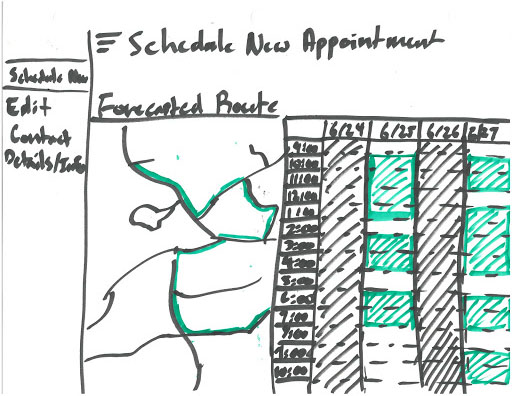 Schedule New Appointment
Schedule New
Edit
Contact
Details/Info
Forecasted Route
6/24 6/25 6/26 6/27
9:00
10:00
11:00
12:00
1:00
2:00
3:00
4:00
5:00
6:00
7:00
8:00
9:00
10:00